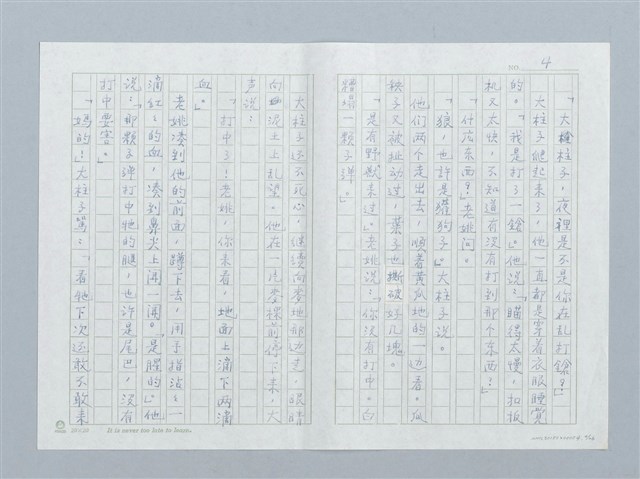 NO. 4
「大柱子，夜裡是不是你在乱打鎗？」
大柱子爬起來了，他一直都是穿着衣服睡覺
的。「我是打了一鎗。」他說：「瞄得太慢，扣扳
机又太快，不知道有没有打到那个东西！」
「什么东西？」老姚问。
「狼，也許是獾狗子。」大柱子說。
他们两个走出去，順着黃瓜地的一边看。瓜
秧子又被扯的过，葉子也撕破好几塊。
「是有野獸来过。」老姚說：「你没有打中。白
糟塌一颗子弹。」
大柱子还不死心，继续向麥地那边走，眼睛
向泥土上乱望。他在一片麥裸前停下来，大
声說：
「打中了！老姚，你来看，地面上滴下两滴
血。」
老姚凑到他的前面，蹲下去，用手指沾了一
滴红红的血，凑到鼻尖上闻一闻。「是腥的。」他
說：「那颗子弹打中牠的腿，也许是尾巴，没有
打中要害。」
「媽的！」大柱子罵：「看牠下次还敢不敢来
It is never too late to learn.